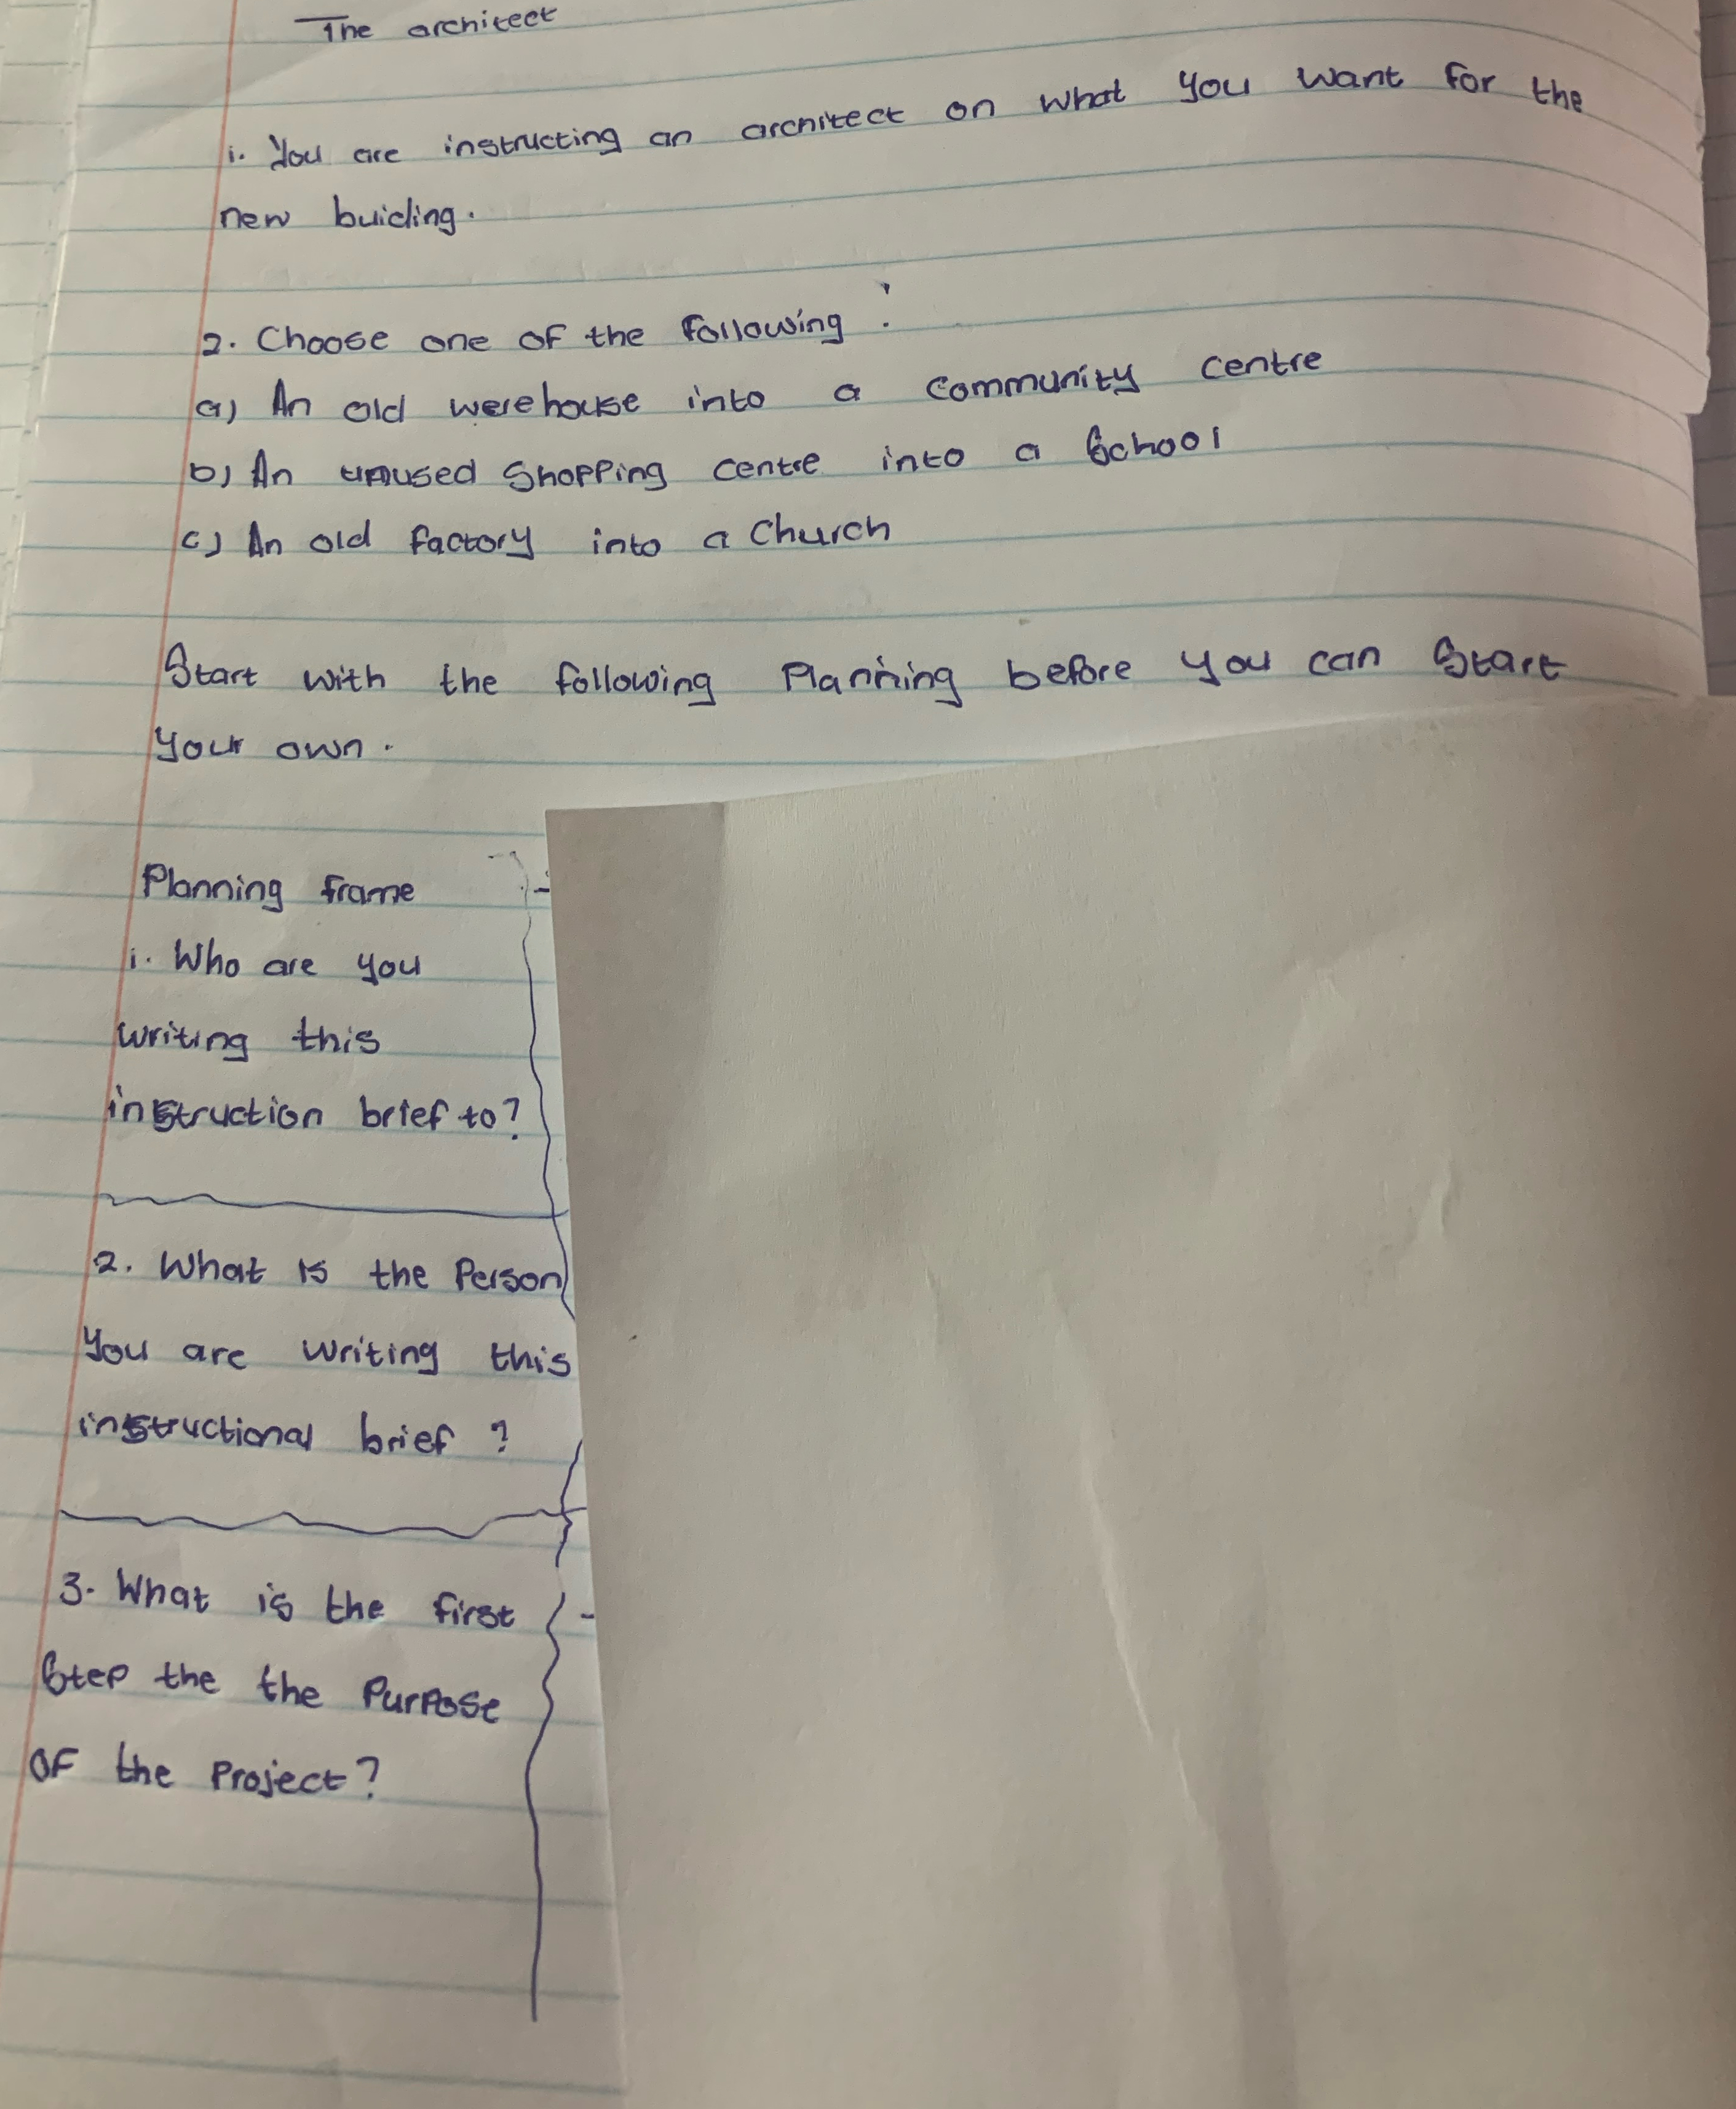 The architect
1. You are instructing an architect on what you want for the
new buiding.
2. Choose one of the following :
a) An old werehouse into a community centre
b) An unused shopping centre into a school
c) An old factory into a church
Start with the following planning before you can start
your own.
Planning frame
1. Who are you
writing this
instruction brief to?
2. What is the person
you are writing this
instructional brief ?
3. What is the first
step the the purpose
of the project?